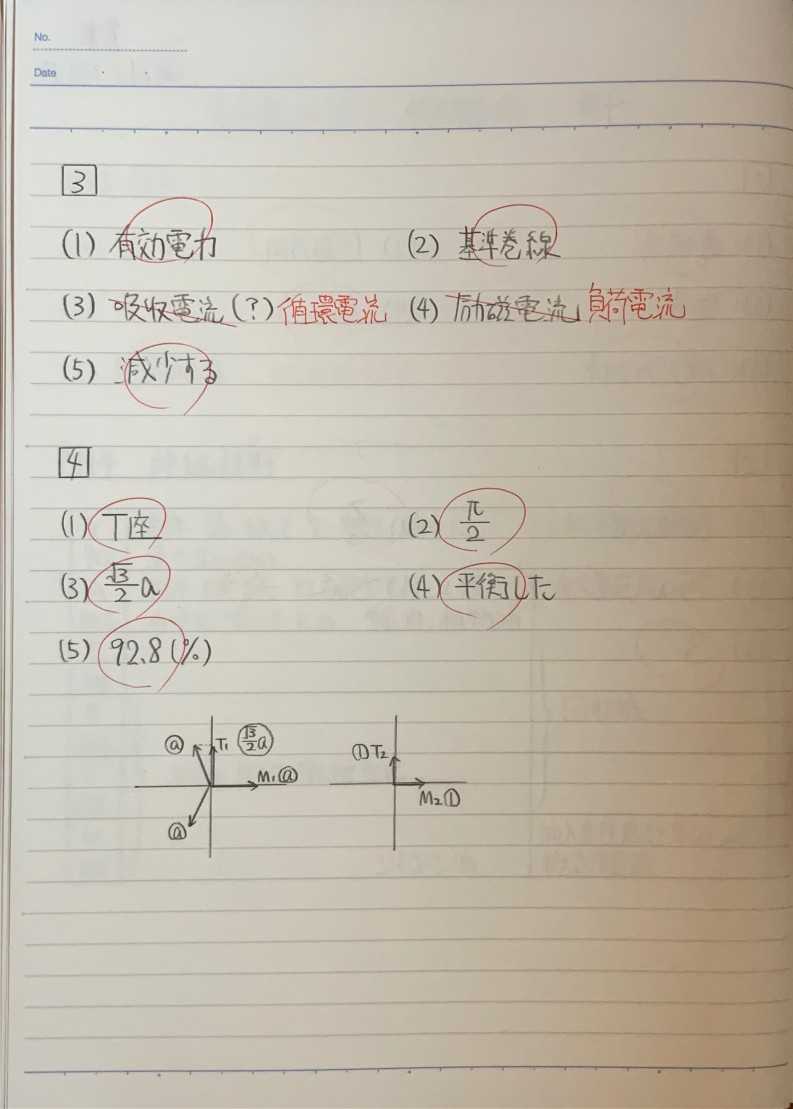 No.
Date
3
(1) 有効電力 (2) 基準巻線
(3) 吸収電流(?) 循環電流 (4) 励磁電流 負荷電流
(5) 減少する
4
(1) T座 (2) π/2
(3) √3/2 a (4) 平衡した
(5) 92.8(%)
a T₁ √3/2 a ① T₂
M₁ a M₂ ①
a